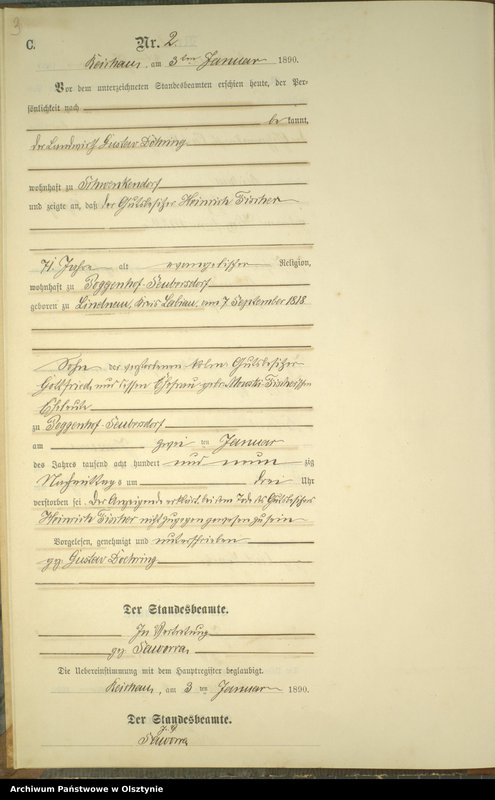 3
C.
Nr. 2
Reichau, am 3ten Januar 1890.
Vor dem unterzeichneten Standesbeamten erschien heute, der Per-
sönlichkeit nach
bekannt,
der Landwirth Gustav Döhring
wohnhaft zu Schwenkendorf
und zeigte an, daß der Gutsbesitzer Heinrich Fischer
71 Jahre alt evangelischer Religion,
wohnhaft zu Poggenhof Seubersdorf
geboren zu Lindenau, Kreis Labiau, am 7 September 1818
Sohn der verstorbenen Gutsbesitzer
Gottfried und dessen Ehefrau geb. Fischerschen
Eheleute
zu Poggenhof Seubersdorf
am zwei ten Januar
des Jahres tausend acht hundert und neun zig
Nachmittags um drei Uhr
verstorben sei. Der Anzeigende erklärt, bei dem Tode des Gutsbesitzers
Heinrich Fischer nicht zugegen gewesen zu sein
Vorgelesen, genehmigt und unterschrieben
gez. Gustav Doehring
Der Standesbeamte.
In Vertretung
gez. Saworra
Die Uebereinstimmung mit dem Hauptregister beglaubigt.
Reichau, am 3 ten Januar 1890.
Der Standesbeamte.
J. V.
Saworra
Archiwum Państwowe w Olsztynie